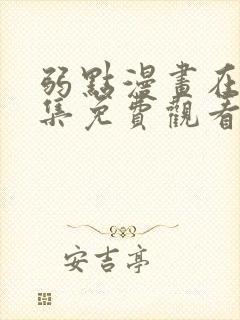 弱點漫畫在
集免費觀看
安吉亭